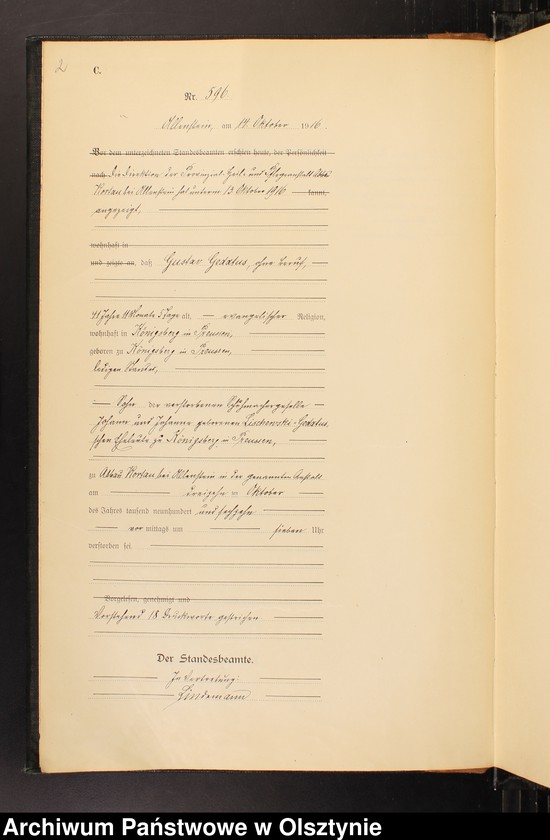 2
C.
Nr. 596.
Allenstein, am 14. Oktober 1916.
Vor dem unterzeichneten Standesbeamten erschien heute, der Persönlichkeit
nach die Direktion der Provinzial-Heil- und Pflegeanstalt Abbau
Kortau bei Allenstein hat unterm 13. Oktober 1916 kannt,
angezeigt,
wohnhaft in
und zeigte an, daß Gustav Gedatus, ohne Beruf,
41 Jahre 11 Monate 5 Tage alt, evangelischer Religion,
wohnhaft in Königsberg in Preussen,
geboren zu Königsberg in Preussen,
ledigen Standes,
Sohn der verstorbenen Schuhmachergeselle
Johann und Johanne geborenen Gedatus
schen Eheleute zu Königsberg in Preussen,
zu Abbau Kortau bei Allenstein in der genannten Anstalt
am dreizehn ten Oktober
des Jahres tausend neunhundert und sechzehn
vor mittags um sieben Uhr
verstorben sei.
Vorgelesen, genehmigt und
Vorstehend 18 Druckworte gestrichen.
Der Standesbeamte.
In Vertretung:
Lindemann
Archiwum Państwowe w Olsztynie